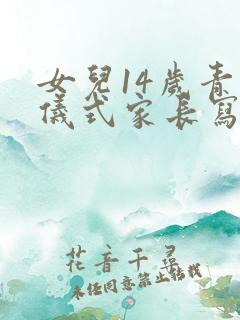 女兒14歲青
儀式家長寫
花音千尋
未经同意禁止转载